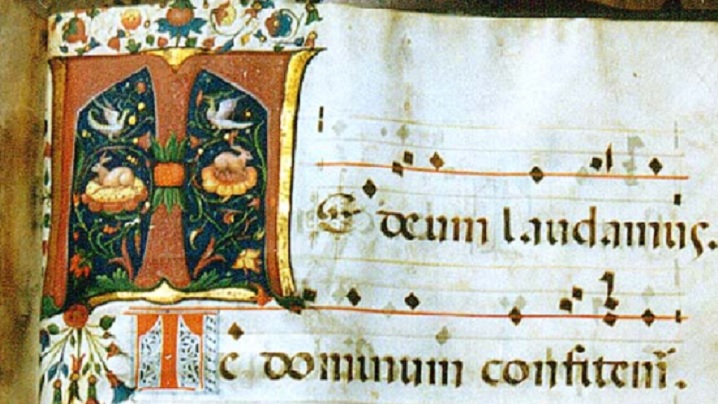 TE deum laudamus.
Te dominum confitem̄.